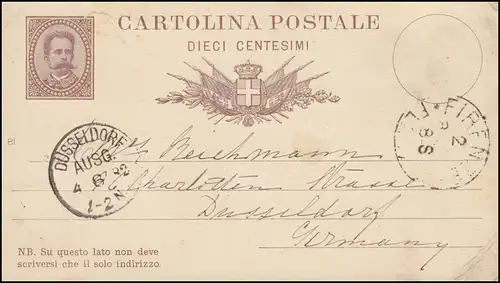 CARTOLINA POSTALE
DIECI CENTESIMI
DÜSSELDORF
AUSG.
1-2 N
FIREN
Reichmann
Charlotten Strasse
Dusseldorf
Germany
NB. Su questo lato non deve
scriversi che il solo indirizzo.